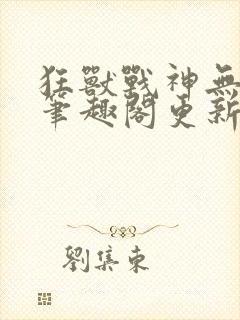 狂獸戰神無
筆趣閣更新
劉集東